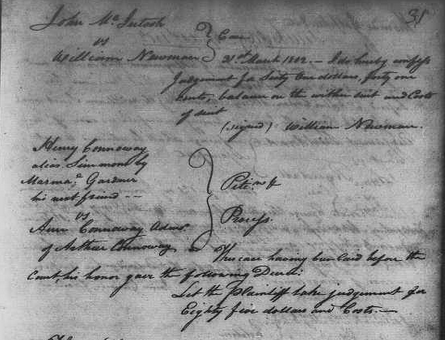 31
John McIntosh
vs
William Newman
Case
31st March 1802. — I do hereby confess
Judgement for Sixty One dollars, forty one
Cents, balance on the within suit and Costs
of suit
(signed) William Newman.
Henry Connoway
alias Simmons by
Marma. Gardner
his next friend --
vs
Ann Connoway Admx
of Arthur Connoway
Petn &
Process
This case having been laid before the
Court, his honor gave the following Decree:
Let the Plaintiff take judgement for
Eighty five dollars and Costs. —